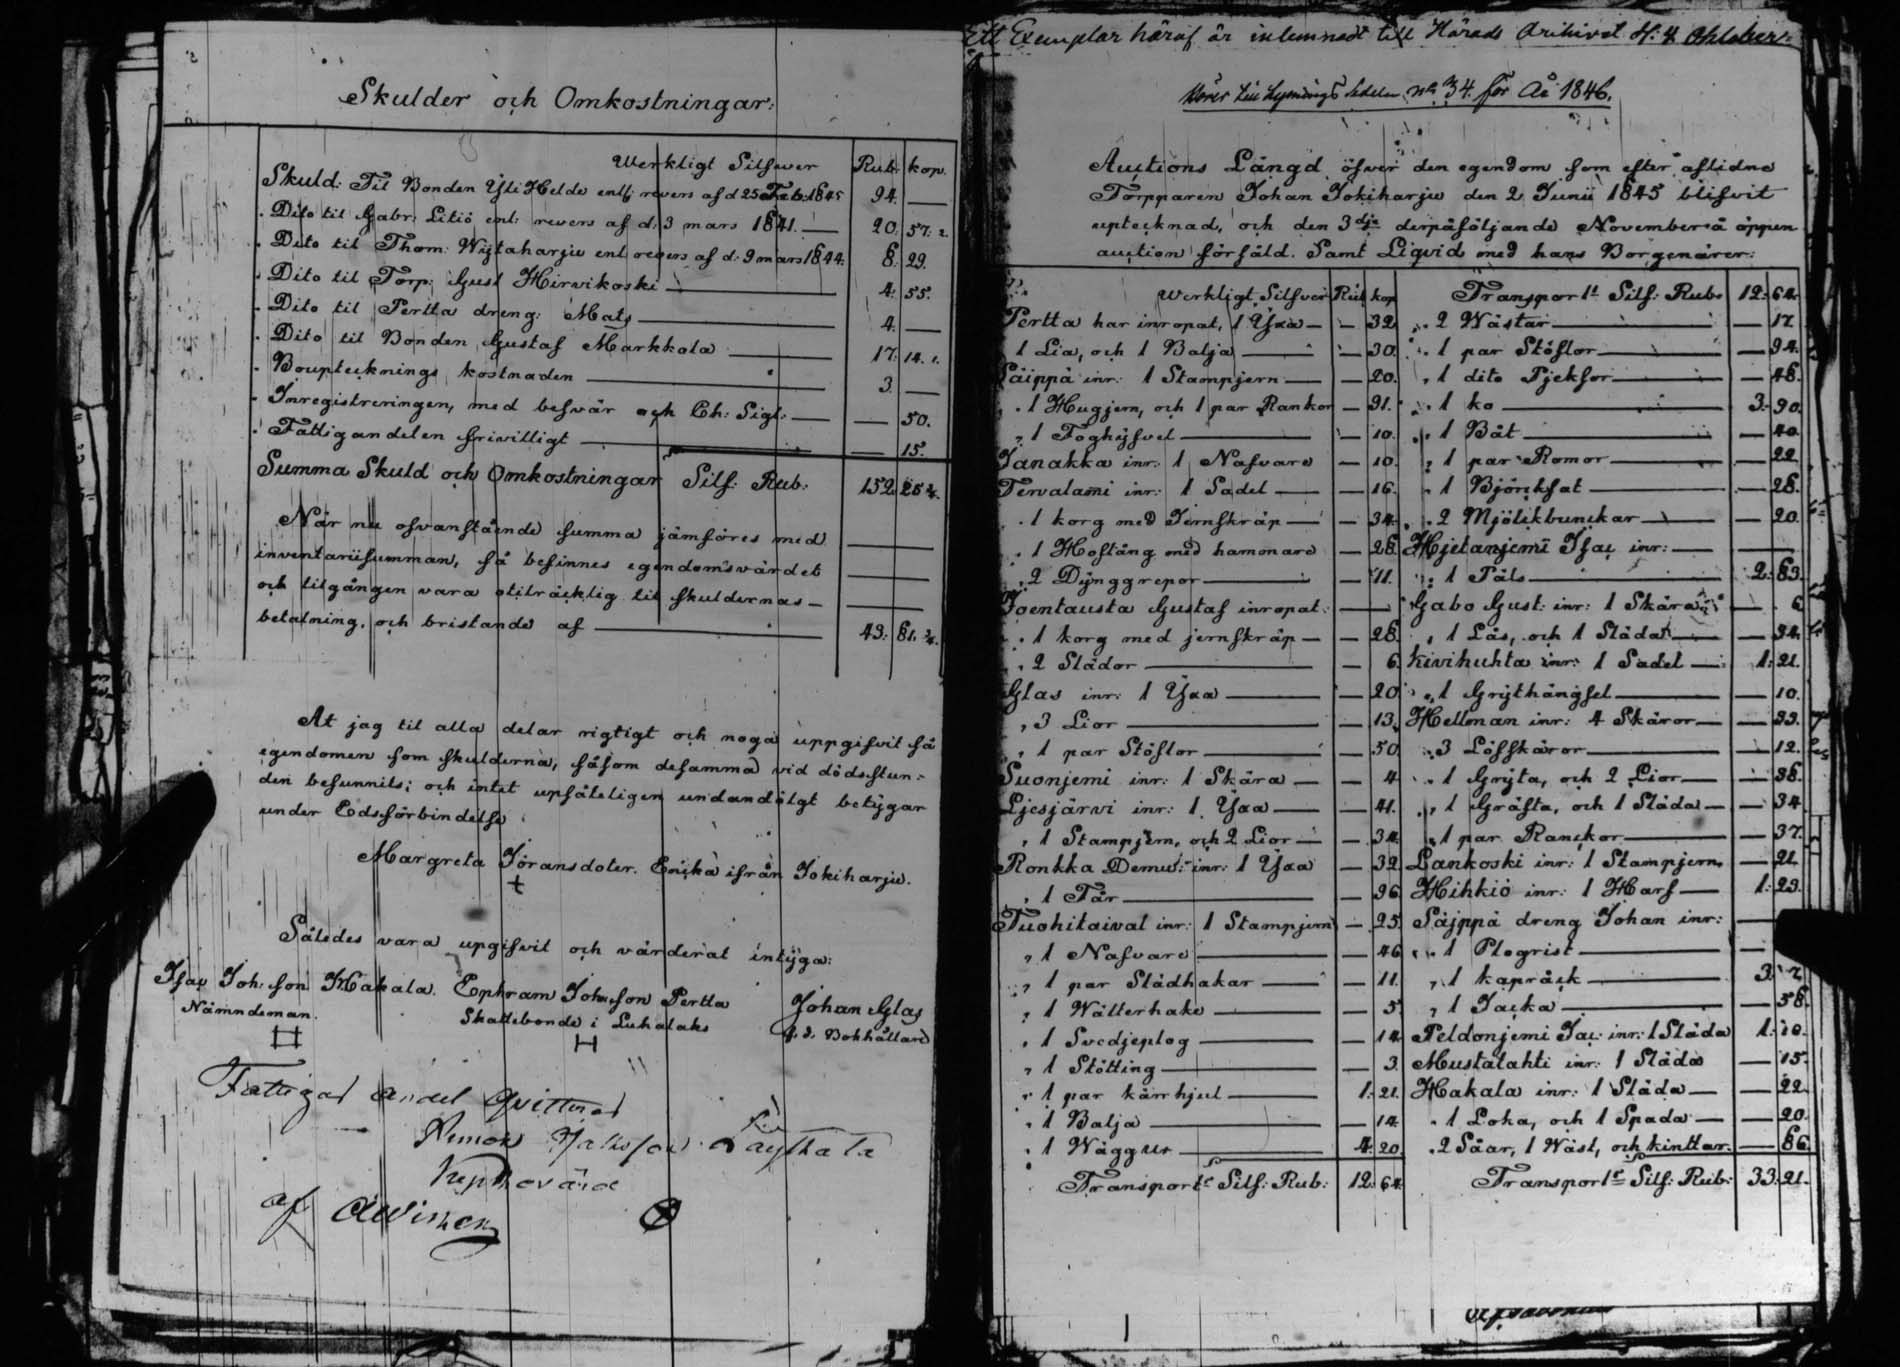 Skulder och Omkostningar:
Werkligt Silfwer Rub: kop.
Skuld: Til Bonden Yli Helde enl: revers af d 25 Feb: 1845 94. —
Dito til Gabr: Litiö enl: revers af d: 3 mars 1841. — 20. 57.
Dito til Thom: Wijtaharju enl revers af d: 9 mars 1844. 8. 29.
Dito til Torp: Gust Hirvikoski — 4. 55.
Dito til Pertta dreng: Mats — 4. —
Dito til Bonden Gustaf Markkola — 17. 14.
Bouptecknings kostnaden — 3. —
Inregistreringen, med besvär och Ch: Sigl: — — 50.
Fattigandelen frivilligt — — 15.
Summa Skuld och Omkostningar Silf: Rub: 152
När nu ofvanstående summa jämföres med
inventariisumman, så befinnes egendomsvärdet
och tilgången vara otilräcklig til skuldernas —
betalning, och bristande af — 43: 81.
At jag til alla delar rigtigt och noga uppgifvit så
egendomen som skulderna, såsom desamma vid dödsstun-
den befunnits; och intet upsåteligen undandölgt betygar
under Edsförbindelse
Margreta Jöransdoter. Enka ifrån Jokiharju.
Således vara upgifvit och värderat intyga:
Isac Joh: son Hakala. Ephram Johnson Pertta Johan Glas
Nämndeman. Skattebonde i Luhalaks f. d. Bokhållare
Fattigas andel qvitteras
af
Ett Exemplar häraf är inlemnadt till Härads Arihivet d: 4 Oktober.
No 34. för År 1846.
Auctions Längd öfver den egendom som efter aflidne
Torpparen Johan Jokiharju den 2 Junii 1845 blifvit
uptecknad, och den 3dje derpåföljande November å öppen
auction försåld. Samt Liqvid med hans Borgenärer:
Werkligt Silfver Rub kop
Pertta har inropat, 1 Yxa — — 32
1 Lia, och 1 Balja — — 30.
Säippä inr: 1 Stampjern — — 20.
1 Hugjern, och 1 par Rankor — 91.
1 Foghyfvel — — 10.
Janakka inr: 1 Nafvare — 10.
Tervalami inr: 1 Sadel — — 16.
1 korg med Jernskräp — — 34.
1 Hoftång med hamonare — 28.
2 Dynggrepor — — 11.
Joentausta Gustaf inropat: —
1 korg med jernskräp — — 28.
2 Slädor — — 6.
Glas inr: 1 Yxa — — 20
3 Lior — — 13.
1 par Stöflor — — 50
Suonjemi inr: 1 Skära — — 4
Ljesjärvi inr: 1 Yxa — — 41.
1 Stampjern, och 2 Lior — — 34.
Ronkka Demus: inr: 1 Yxa — 32
1 Får — 96
Tuohitaival inr: 1 Stampjern — 25.
1 Nafvare — — 46
1 par Slädhakar — — 11.
1 Wätterhake — — 5.
1 Svedjeplog — — 14.
1 Stötting — — 3.
1 par kärrhjul — 1: 21.
1 Balja — — 14.
1 Wäggur — 4. 20.
Transport Silf: Rub: 12: 64.
Transport Silf: Rub: 12: 64.
2 Wästar — — 17.
1 par Stöflor — — 94.
1 dito Pjeksor — — 48.
1 ko — 3: 90.
1 Båt — — 40.
1 par Romor — — 22
1 Björkfat — — 28.
2 Mjölkbunckar — — 20.
Hjetanjemi Isac inr: —
1 Päls — 2: 83.
Gabo Gust: inr: 1 Skära — 6
1 Lås, och 1 Släda — — 94.
Kivihuhta inr: 1 Sadel — 1: 21.
1 Grythängsel — — 10.
Hellman inr: 4 Skäror — — 99.
3 Löfskäror — — 12.
1 Gryta, och 2 Lior — — 38.
1 Gräfta, och 1 Släda — — 34
1 par Ranckor — — 37.
Lankoski inr: 1 Stampjern — 21
Hihkiö inr: 1 Harf — 1: 23.
Säjppä dreng Johan inr: —
1 Plogrist — —
1 kapräck — 3:
1 Jacka — — 58.
Peldonjemi Isac inr: 1 Släda 1: 10.
Mustalahti inr: 1 Släda — 15.
Hakala inr: 1 Släda — — 22
1 Loka, och 1 Spada — — 20.
2 Såar, 1 Wäst, och kinttar. — 86.
Transport Silf: Rub: 33: 21.